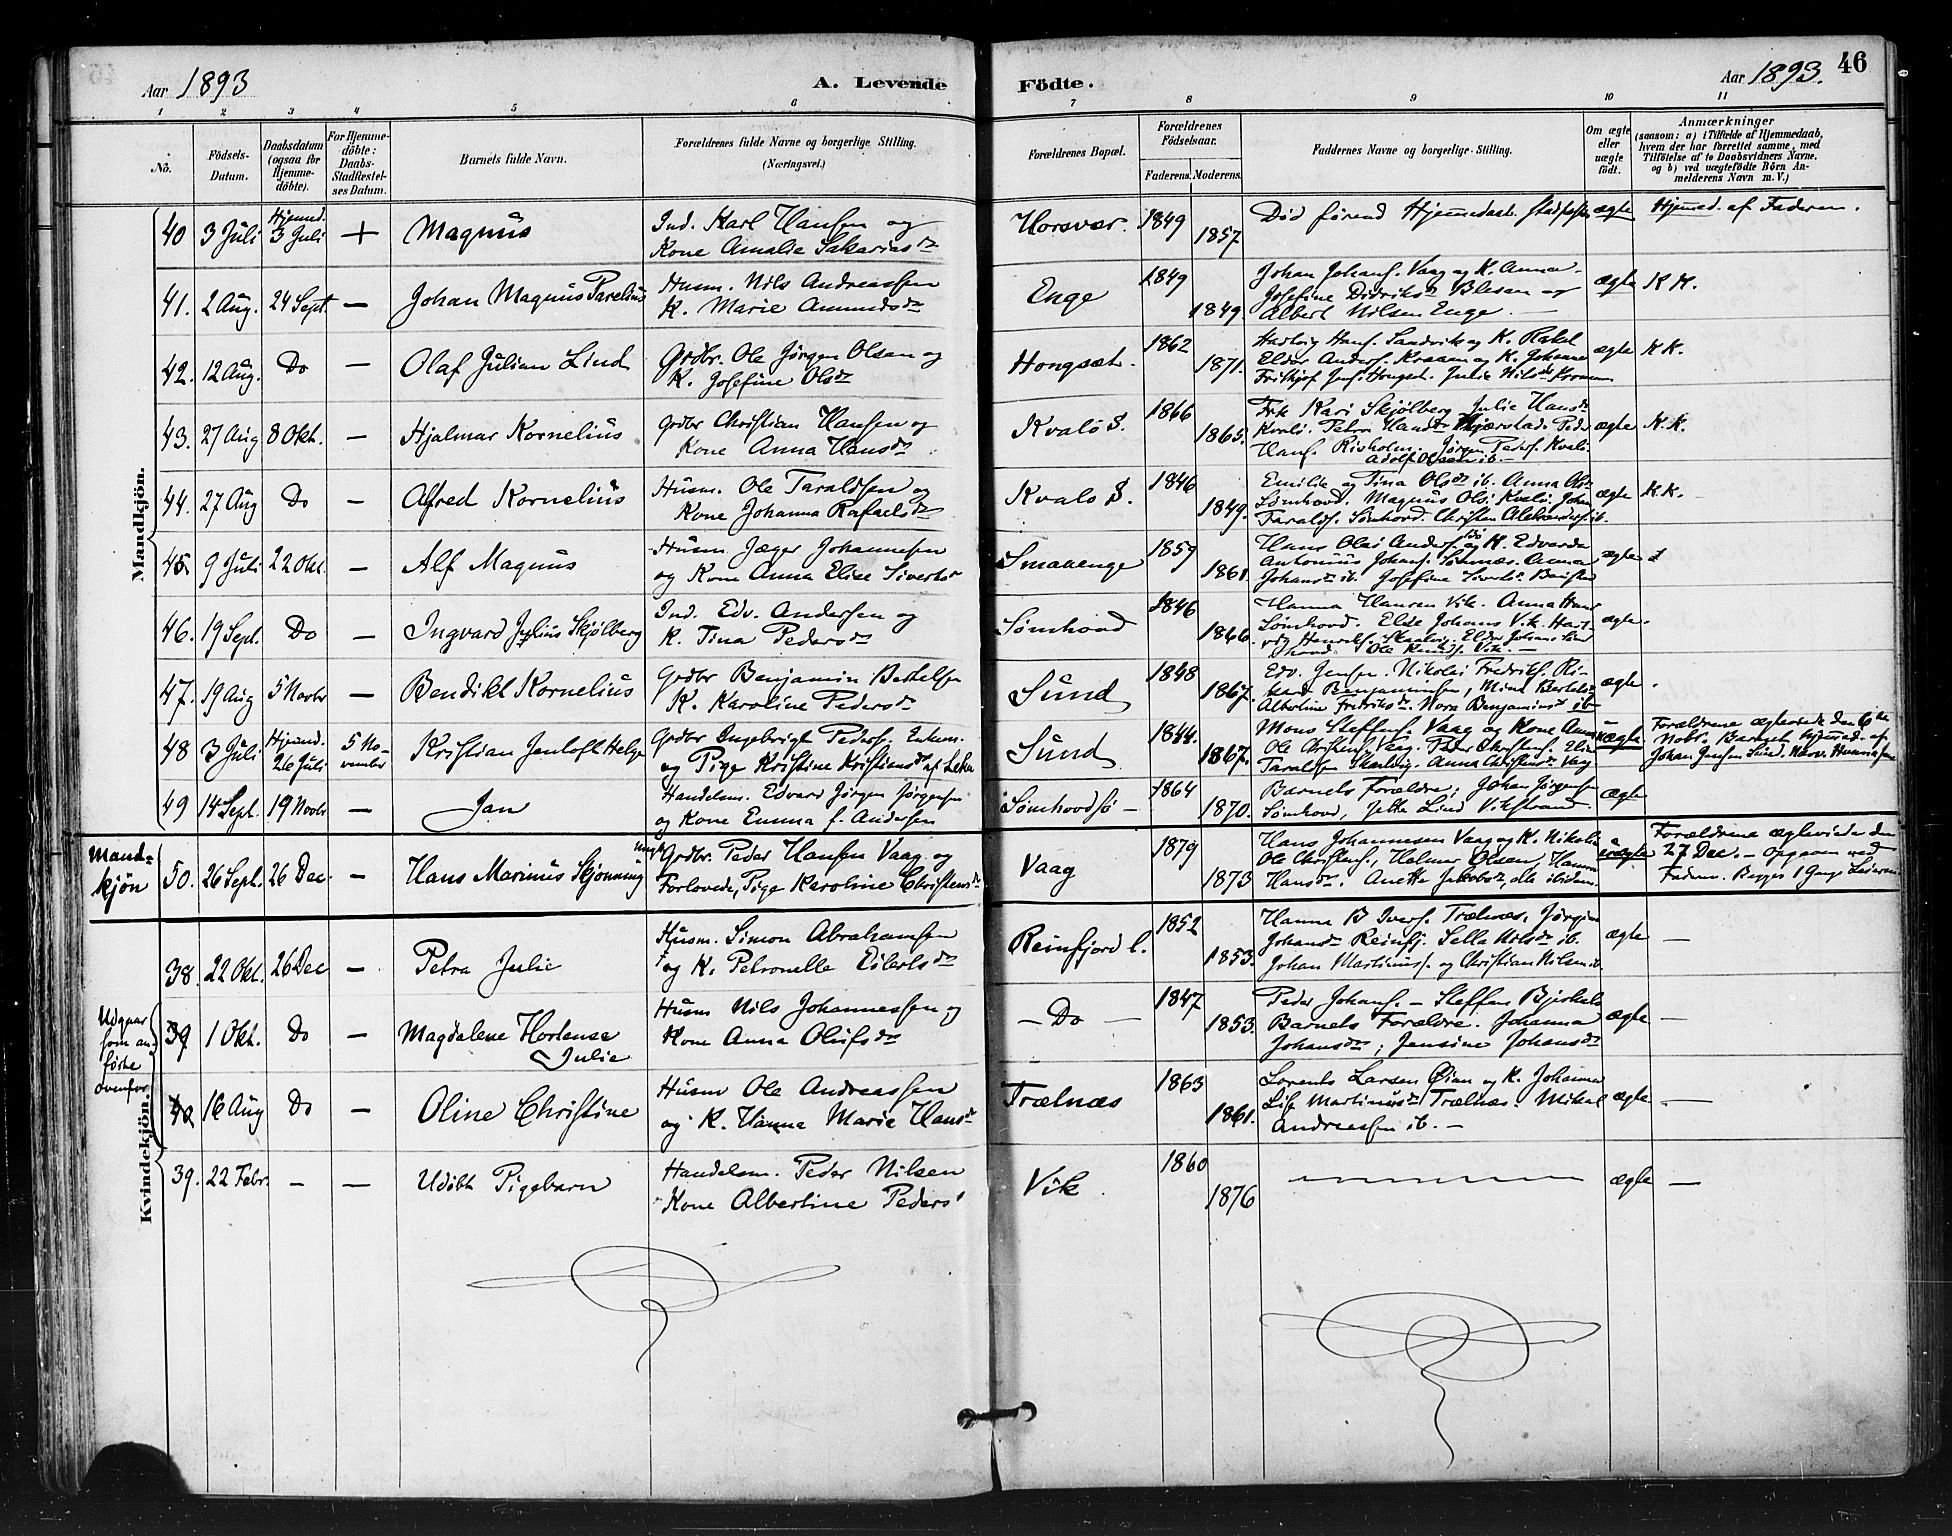 Aar 1893
A. Levende
Födte.
Aar 1893.
46
1 2 3 4 5 6 7 8 9 10 11
No.
Födsels-
Datum.
Daabsdatum
(ogsaa för
Hjemme-
döbte).
For Hjemme-
döbte:
Daabs-
Stadfæstel-
ses Datum.
Barnets fulde Navn.
Forældrenes fulde Navne og borgerlige Stilling.
(Næringsvei.)
Forældrenes Bopæl.
Forældrenes
Födselsaar.
Faderens. Moderens.
Faddernes Navne og borgerlige Stilling.
Om ægte
eller
uægte
födt.
Anmærkninger
(saasom: a) i Tilfælde af Hjemmedaab,
hvem der har forrettet samme, med
Tilföielse af to Daabsvidners Navne,
og b) ved uægtefödte Börn An-
melderens Navn m. V.)
Mandkjön.
40 3 Juli Hjemd. 3 Juli + Magnus
Ind. Karl Hansen og
Kone Amalie Sakariasdr
Horsvær. 1849 1857.
Död förend Hjemmedaab ægte Hjemmed. af Faderen.
41. 2 Aug. 24 Sept. — Johan Magnus Parelius
Husm. Nils Andreassen
K. Marie Amundsdr
Enge 1849 1849.
Johan Johans. Vaag og K. Anna
Josefine Didriksdr Blesan og
Albert Nilsen Enge. —
ægte K K.
42. 12 Aug. Do — Olaf Julian Lind
Grdbr. Ole Jørgen Olsen og
K. Josefine Olsdr
Hongsæt. 1862 1871.
Hans. Sandvik og K. Rakel
ægte K K.
43. 27 Aug 8 Okt. — Hjalmar Kornelius
Grdbr Christian Hansen og
Kone Anna Hansdr
Kvalö S. 1866 1865.
Frk Kari Skjølberg Julie Hansdr
Adolf Olsen ib. —
ægte K.K.
44. 27 Aug Do — Alfred Kornelius
Husm. Ole Taraldsen og
Kone Johanna Rafaelsdr
Kvalö S. 1846 1849.
Emilie og Tina Olsdr ib. Anna Ols
Sømhovd. Magnus Ols. Kvalö. Johan
Taralds. Sømhovd.
ægte K.K.
45. 9 Juli 22 Okt. — Alf Magnus
Husm Jæger Johannesen
og Kone Anna Elise Sivertsdr
Smaaenge 1859 1861.
Hans Olai Anders. og K. Edvarda
Antonius Johans. Sømnæs. Anna
Johansdr ib. Josefine
ægte
46. 19 Sept. Do — Ingvard Julius Skjølberg
Ind. Edv. Andersen og
K. Tina Pedersdr
Sømhovd 1846 1866.
Hanna Hansen Vik. Anna Hans
Sømhovd.
ægte.
47. 19 Aug 5 Novbr — Bendikt Kornelius
Grdbr Benjamin Bertelsen
K. Karoline Pedersdr
Sund 1848 1867.
Edv. Jensen. Nikolai Fredriks. Ri-
kard Benjaminsen, Mina Bertels
Albertine Fredriksdr. Nora Benjaminsdr ib
ægte.
48 3 Juli Hjemd. 26 Juli 5 No-
vember Kristian Jentoft Helge
Grdbr Ingebrigt Peders. Enkem.
og Pige Kristine Kristiansdr af Leka
Sund 1844. 1867.
Mons Steffens. Vaag og Kone Anne
Ole Christens. Vaag. Peder Christens.
Anna Christensdr Vaag
uægte
Forældrene ægteviede den 6te
Novbr. Barnet hjemmed. af
Johan Jensen Sund.
49 14 Sept. 19 Novbr — Jan
Handelsm. Edvard Jörgen Jørgensen
og Kone Emma f. Andersen
Sømhovdsö — 1864 1870.
Barnets Forældre, Johan Jörgensen
Sömhovd, Lind Vikstrand.
ægte
Mand-
kjön
50. 26 Sept. 26 Dec. — Hans Marinus Skjönning
Ungk. Grdbr. Peder Hansen Vaag og
Forlovede, Pige Karoline Christensdr
Vaag 1879 1873
Hans Johannesen Vaag og K. Nikolin
Ole Christens., Helmer Olsen, Hanna
Hansdr. Anette Jakobsdr, alle ibidem.
uægte
Forældrene ægteviede den
27 Dec. — Opgaven ved
Faderen. Begges 1 Gangs
Udgaar
som an-
förte
ovenfor.
Kvindekjön.
38. 22 Okt. 26 Dec — Petra Julie
Husm. Simon Abrahamsen
og K. Petronelle Eilertsdr
Reinfjord l. 1852 1853.
Hanna B Ivers. Trælnæs, Jörgine
Johansdr Reinfj. Sella Nilsdr ib.
Johan Martinus. og Christian Nilsen ib.
ægte —
39 1 Okt. Do — Magdalene Hortense
Julie
Husm Nils Johannessen og
Kone Anna Olufsdr
— Do — 1847 1853.
Peder Johans. — Steffen Bjerkelo
Barnets Forældre. Johanna
Johansdr; Jensine Johansdr
ægte —
40 16 Aug Do — Oline Christine
Husm Ole Andreassen
og K. Hanna Marie Hansdr
Trælnæs 1863 1861.
Lorents Larsen Øian og K. Johanna
Lise Martinusdr Trælnæs. Mikal
Andreassen ib. —
ægte —
39. 22 Febr. — — Udöbt Pigebarn
Handelsm. Peder Nilsen
Kone Albertine Peders
Vik 1860 1876
ægte —